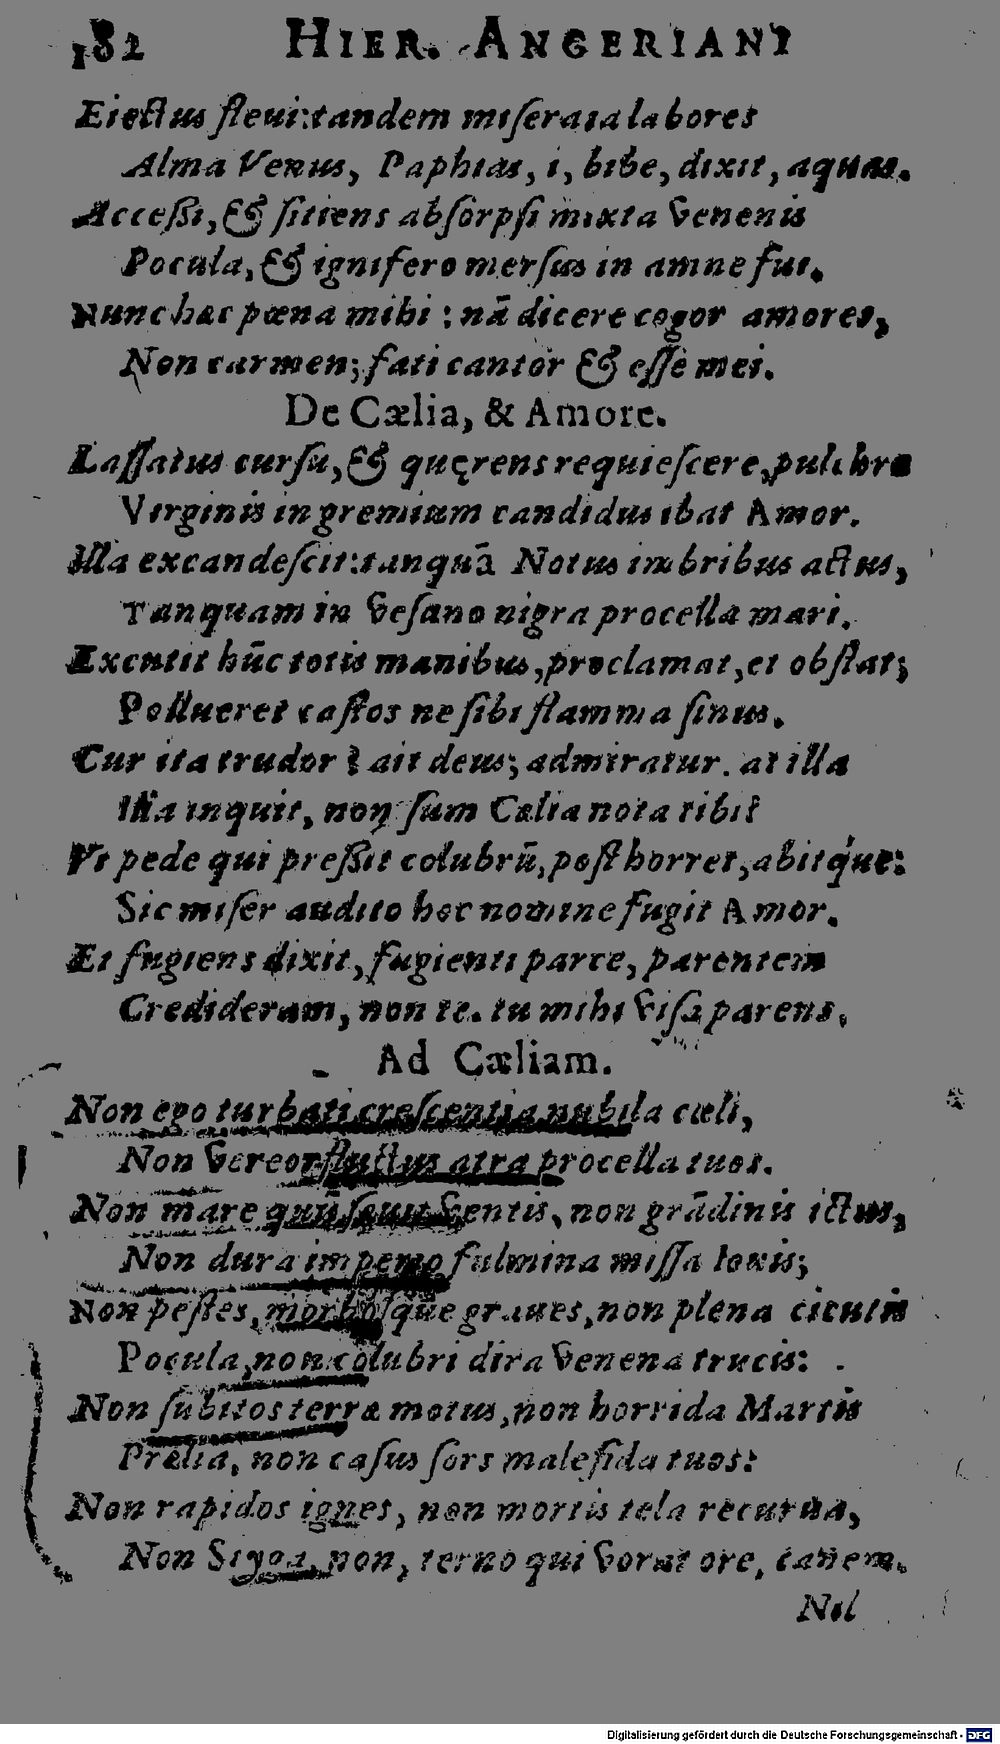 182 HIER. ANGERIANI
Eiectus fleui: tandem miserata labores
Alma Venus, Paphias, i, bibe, dixit, aquas.
Accessi, & sitiens absorpsi mixta venenis
Pocula, & ignifero mersus in amne fui.
Nunc hæc pœna mihi: nā dicere cogor amores,
Non carmen; fati cantor & esse mei.
De Cælia, & Amore.
Lassatus cursu, & quęrens requiescere, pulchræ
Virginis in gremium candidus ibat Amor.
Illa excandescit: tanquā Notus imbribus actus,
Tanquam in vesano nigra procella mari.
Excutit hūc totis manibus, proclamat, et obstat;
Pollueret castos ne sibi flamma sinus.
Cur ita trudor? ait deus; admiratur. at illa
Illa inquit, non sum Cælia nota tibi?
Vt pede qui pressit colubrū, post horret, abitque:
Sic miser audito hoc nomine fugit Amor.
Et fugiens dixit, fugienti parce, parentem
Credideram, non te. tu mihi visa parens.
Ad Cæliam.
Non ego turbati crescentia nubila cœli,
Non vereor fluctus atra procella tuos.
Non mare quū sæuit ventis, non grādinis ictus,
Non dura imperio fulmina missa Iouis;
Non pestes, morbosque graues, non plena cicutis
Pocula, non colubri dira venena trucis:
Non subitos terræ motus, non horrida Martis
Prælia, non casus sors malefida tuos:
Non rapidos ignes, non mortis tela recurua,
Non Styga, non, terno qui vorat ore, canem.
Nil
Digitalisierung gefördert durch die Deutsche Forschungsgemeinschaft - DFG